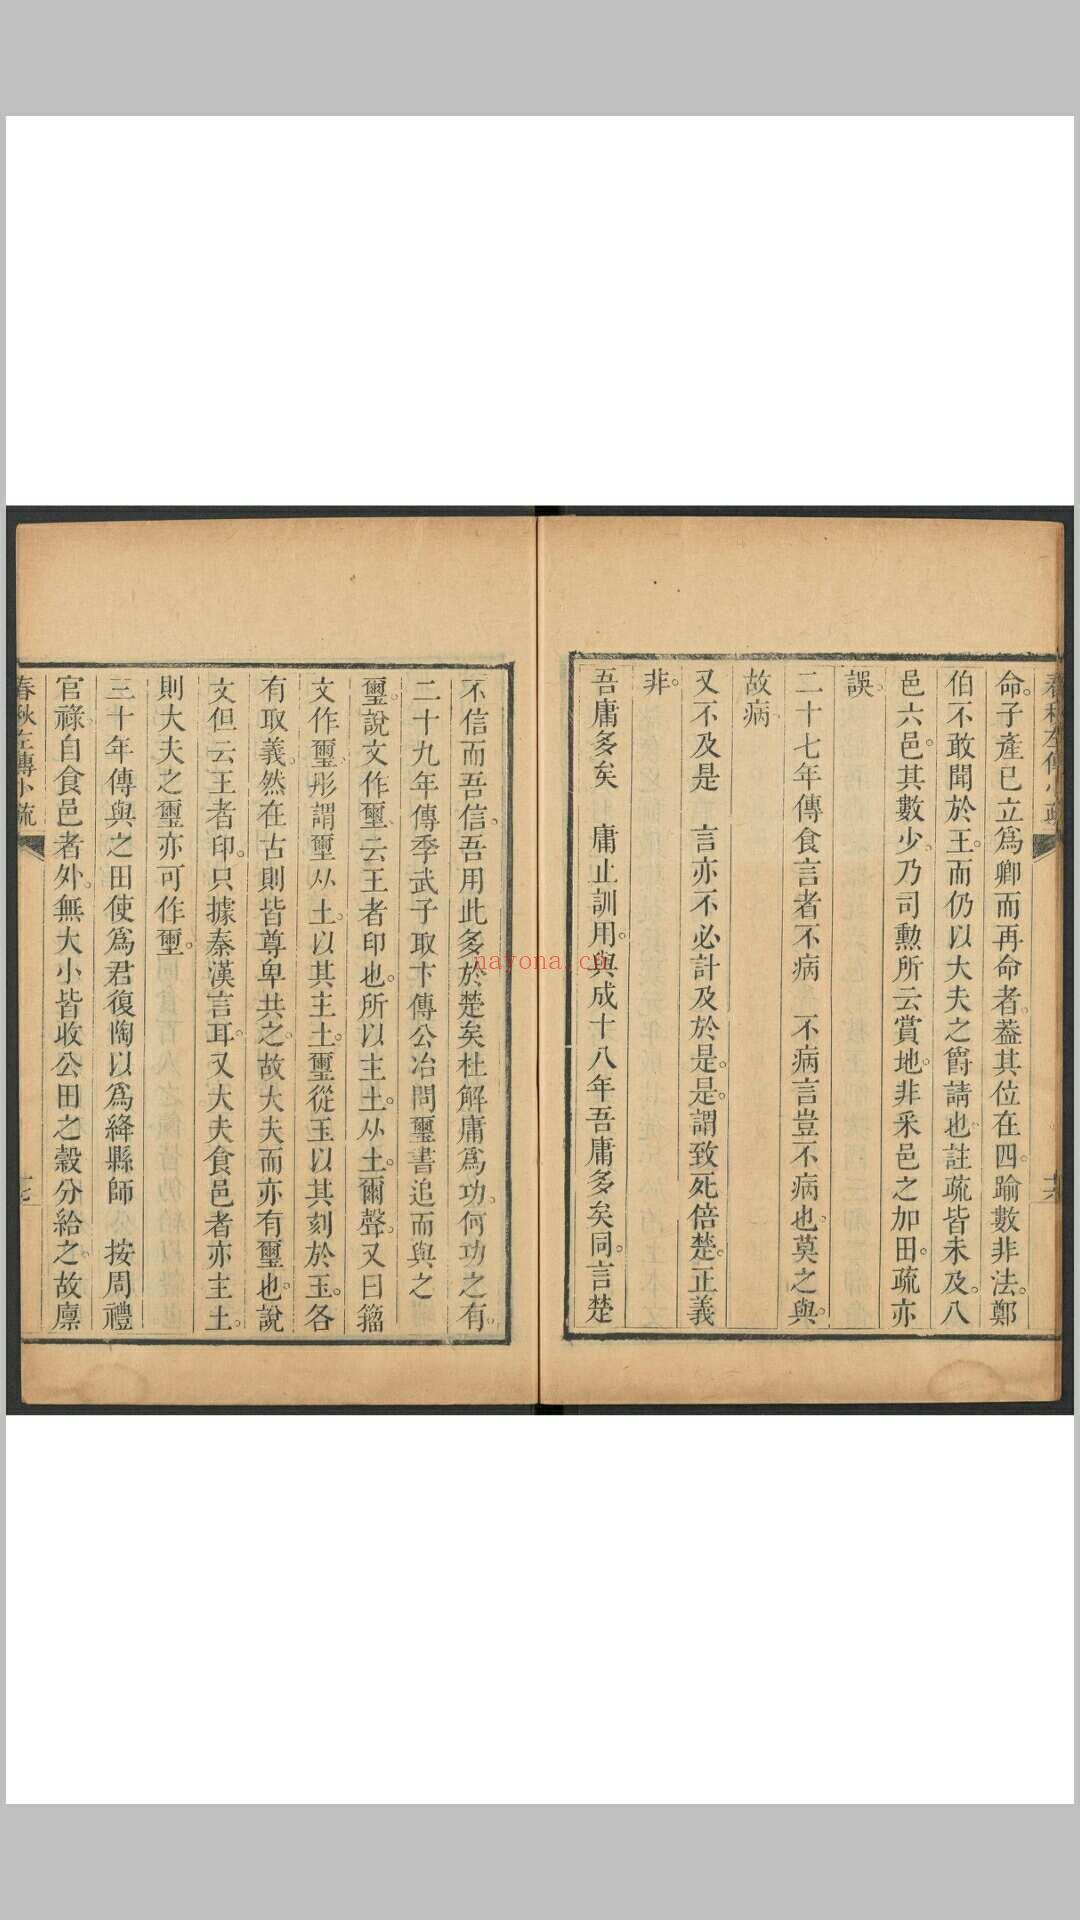 春秋左傳小疏
十六
命。子產已立爲卿而再命者。葢其位在四。踰數非法。鄭
伯不敢聞於王。而仍以大夫之爵請也。註疏皆未及。八
邑六邑。其數少。乃司勲所云賞地。非采邑之加田。疏亦
誤。
二十七年傳食言者不病　不病言豈不病也。莫之與。
故病。
又不及是　言亦不必計及於是。是謂致死倍楚。正義
非。
吾庸多矣　庸止訓用。與成十八年吾庸多矣同。言楚
不信而吾信。吾用此多於楚矣杜解庸爲功。何功之有。
二十九年傳季武子取卞傳公冶問璽書追而與之
璽。說文作壐。云王者印也。所以主土。从土。爾聲。又曰籀
文作璽。彤謂壐从土。以其主土。璽從玉。以其刻於玉。各
有取義。然在古則皆尊卑共之。故大夫而亦有璽也。說
文但云王者印。只據秦漢言耳。又大夫食邑者亦主土。
則大夫之璽亦可作壐。
三十年傳與之田使爲君復陶以爲絳縣師　按周禮
官祿自食邑者外。無大小皆收公田之穀分給之。故廪
春秋左傳小疏
十七
nayona.cn